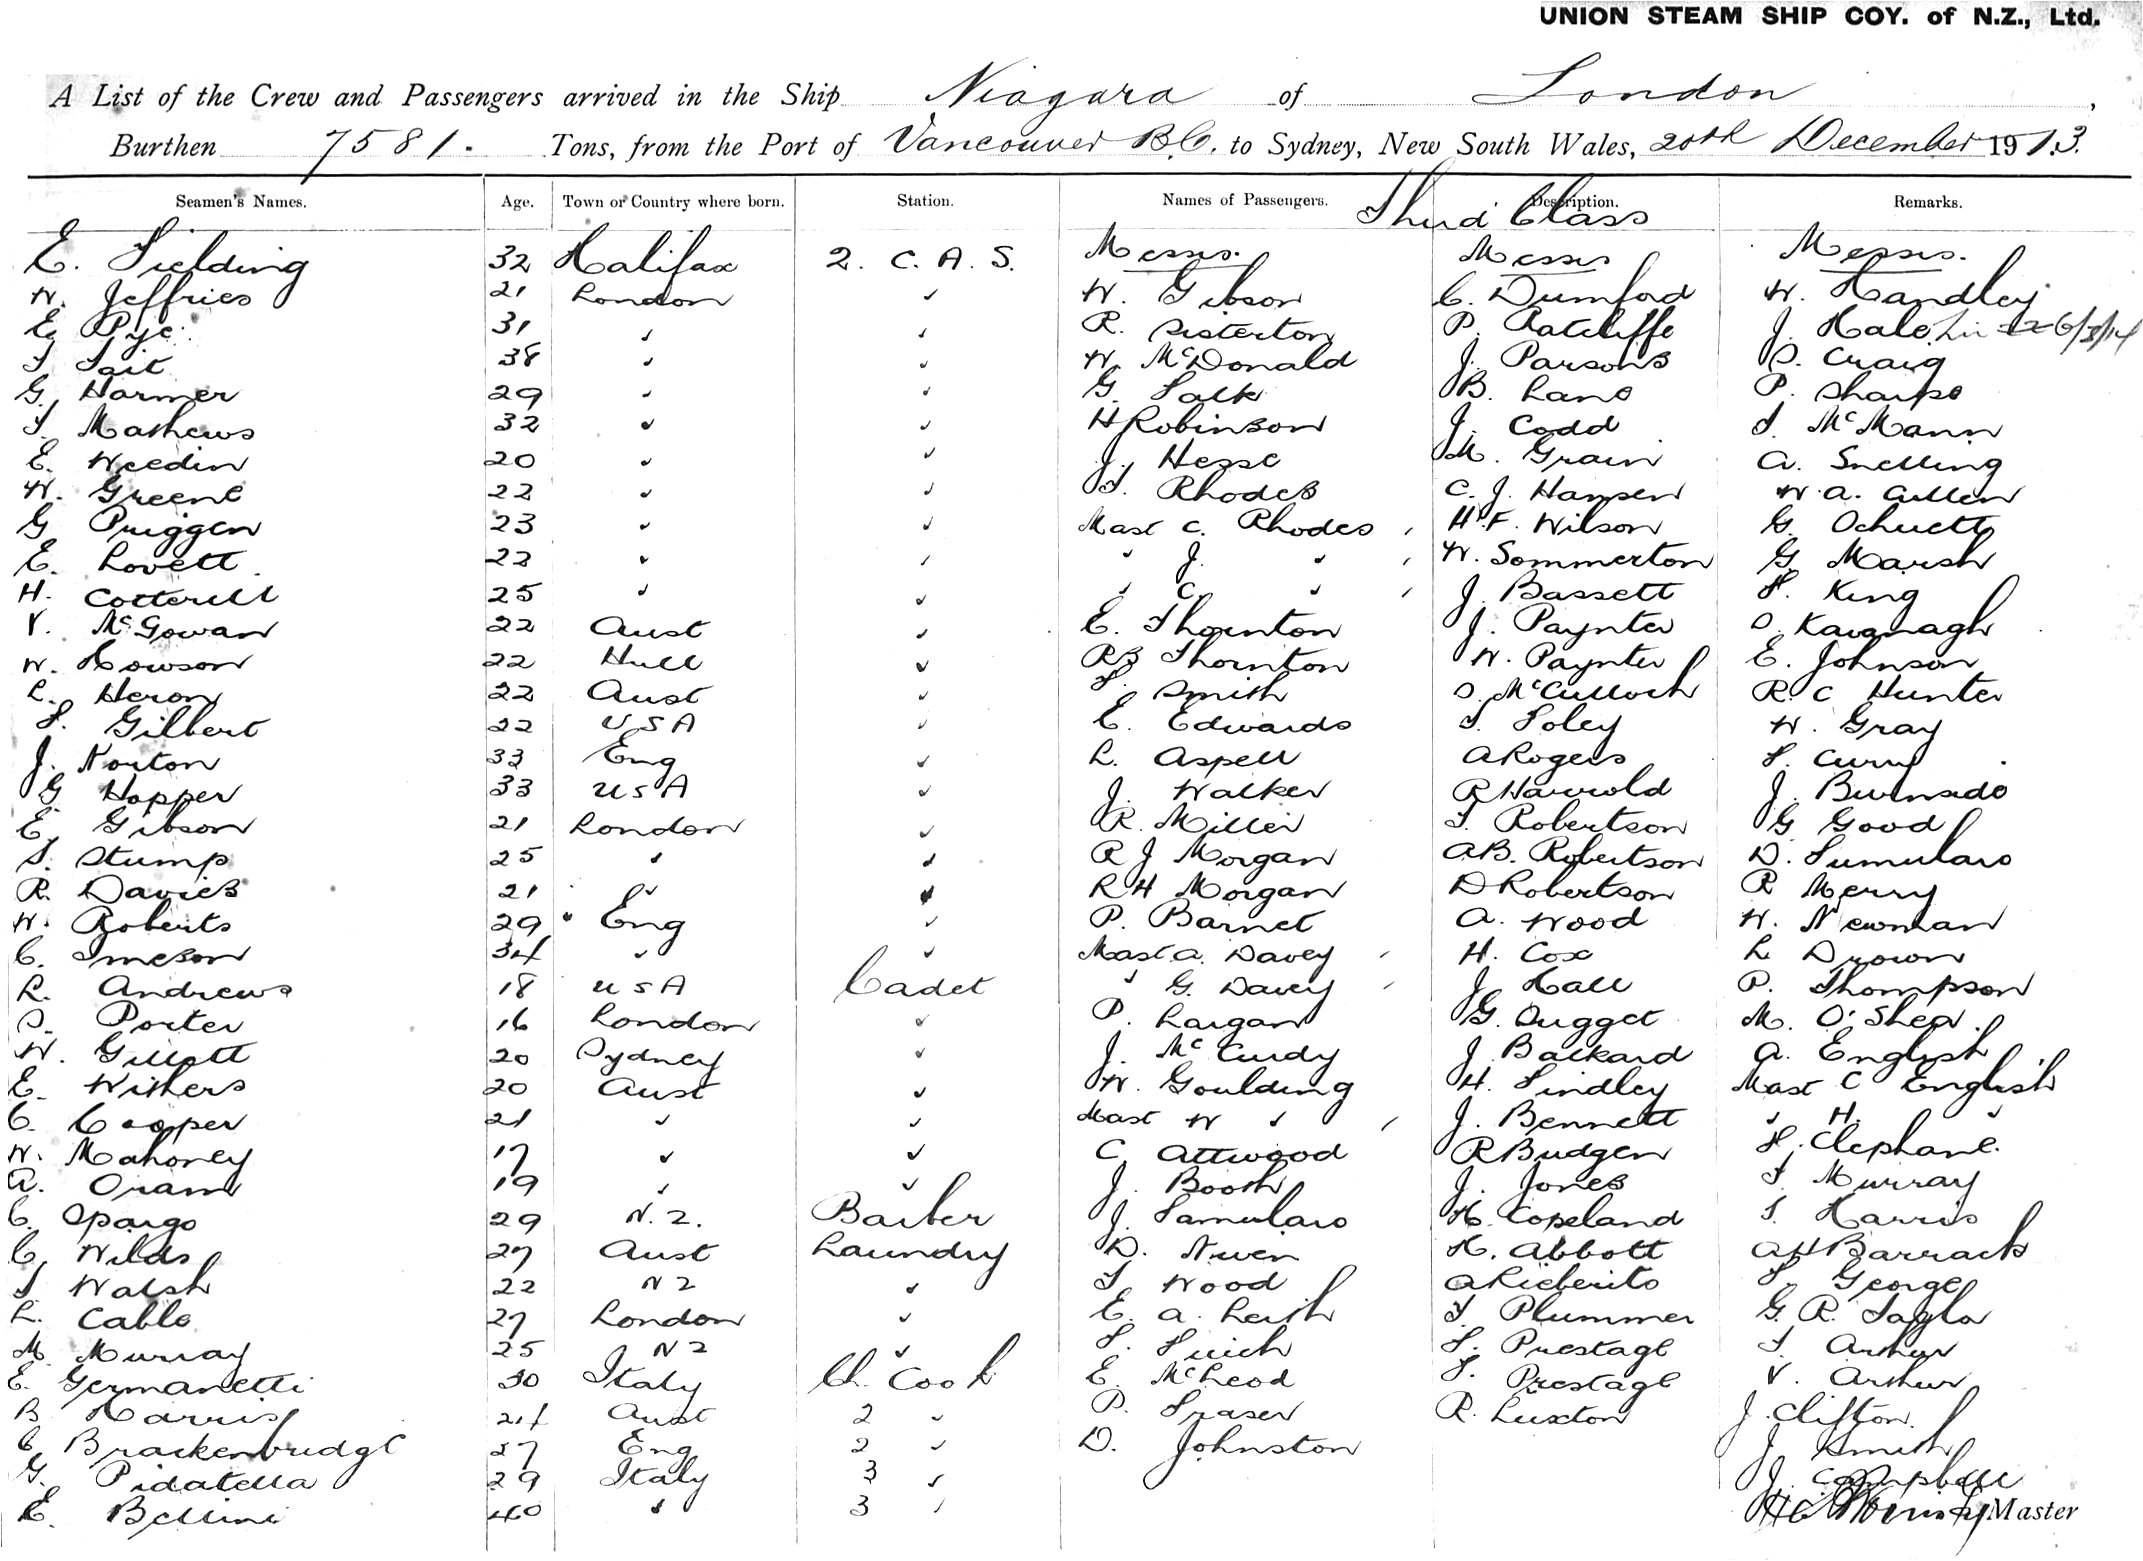 UNION STEAM SHIP COY. of N.Z., Ltd.
A List of the Crew and Passengers arrived in the Ship Niagara of London,
Burthen 7581. Tons, from the Port of Vancouver B.C. to Sydney, New South Wales, 20th December 1913.
Seamen's Names. Age. Town or Country where born. Station. Names of Passengers. Description. Remarks.
Third Class
E. Fielding 32 Halifax 2. C. A. S. Messrs. Messrs Messrs.
W. Jeffries 21 London ✓ W. Gibson C. Dumford W. Handley
E. Pye 31 ✓ ✓ R. Sisterton P. Ratcliffe J. Hale 6/3/14
T Tait 38 ✓ ✓ W. McDonald J. Parsons S. Craig
G. Harmer 29 ✓ ✓ G. Falk B. Lane P. Sharpe
T. Mathews 32 ✓ ✓ H Robinson J. Codd T. McMann
E. Weedin 20 ✓ ✓ J. Hesse M. Grain A. Snelling
W. Greene 22 ✓ ✓ T. Rhodes C. J. Hansen W. A. Cullen
G Priggen 23 ✓ ✓ Mast C. Rhodes H. F. Wilson G. Ochuetty
E. Lovett 22 ✓ ✓ " J. " W. Sommerton G. Marsh
H. Cotterell 25 ✓ ✓ " C. " J. Bassett F. King
V. McGowan 22 Aust ✓ E. Thornton J. Paynter S. Kavanagh
W. Howson 22 Hull ✓ RB Thornton W. Paynter E. Johnson
L. Heron 22 Aust ✓ F. Smith S. McCulloch R. C Hunter
F. Gilbert 22 USA ✓ E. Edwards T. Foley W. Gray
J. Norton 33 Eng ✓ L. Aspell A Rogers F. Curry
G Hopper 33 USA ✓ J. Walker R Harrold J. Burnside
E. Gibson 21 London ✓ R. Miller T. Robertson G Good
S. Stump 25 ✓ ✓ R J Morgan A.B. Robertson D. Fumularo
R. Davies 21 ✓ ✓ R H Morgan D Robertson R Merry
W. Roberts 29 Eng ✓ P. Barnet A. Wood W. Newman
C. Imeson 34 ✓ ✓ Mast. A. Davey H. Cox L Drown
L. Andrews 18 USA Cadet " G. Davey J Hall P. Thompson
S. Porter 16 London ✓ P. Largan G. Dugget M. O'Shea.
W. Gillott 20 Sydney ✓ J. McCurdy J Balkard A. English
E. Withers 20 Aust ✓ W. Goulding H. Findley Mast C English
C. Cooper 21 ✓ ✓ Mast W ✓ J. Bennett " H. "
W. Mahoney 17 ✓ ✓ C. Attwood R Budgen F. Clephane.
A. Oram 19 ✓ ✓ J. Booth J. Jones T Murray
C. Spargo 29 N.Z. Barber J. Famularo H. Copeland T. Harris
C. Wilds 27 Aust Laundry D. Niven H. Abbott A H Barrack
T Walsh 22 NZ ✓ T Wood A Rieberito F. George
L. Cable 27 London ✓ E. A. Leith T. Plummer G. R. Taylor
M. Murray 25 NZ ✓ F. Finch F. Prestage T. Arthur
E. Germanetti 30 Italy Ch. Cook E. McLeod F. Prestage V. Arthur
B Harris 24 Aust 2 ✓ P. Fraser R. Luxton J. Clifton.
C Brackenbridge 27 Eng 2 ✓ D. Johnston J Smith
G. Pidatella 29 Italy 3 ✓ J. Campbell
E. Bellini 40 ✓ 3 ✓ Master